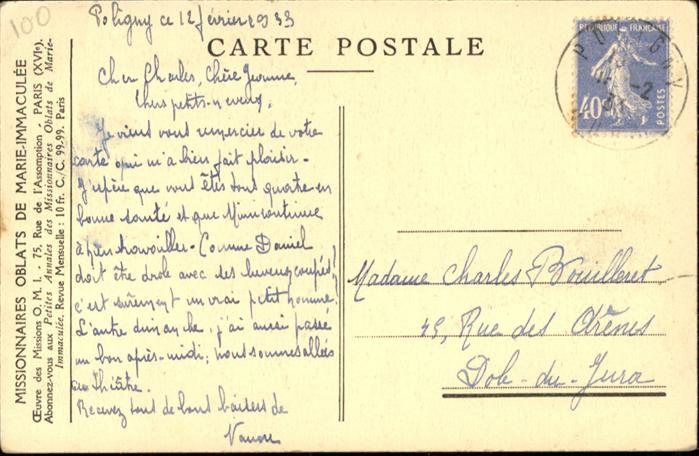 100
Poligny ce 12 février 1933
CARTE POSTALE
Cher Charles, Chère Jeanne,
Chers petits neveux,
Je viens vous remercier de votre
carte qui m'a bien fait plaisir -
J'espère que vous êtes tous quatre en
bonne santé et que Mimi continue
à bien travailler - Comme Daniel
doit être drole avec ses cheveux coupés!
c'est sûrement un vrai petit homme!
L'autre dimanche, j'ai aussi passé
un bon après-midi; nous sommes allées
au théâtre.
Recevez tous de bons baisers de
MISSIONNAIRES OBLATS DE MARIE-IMMACULÉE
Œuvre des Missions O. M. I. - 75, Rue de l'Assomption - PARIS (XVIe).
Abonnez-vous aux Petites Annales des Missionnaires Oblats de Marie-
Immaculée. Revue Mensuelle : 10 fr. C./C. 99-99. Paris
REPUBLIQUE FRANÇAISE
40c
POSTES
POLIGNY
Madame Charles Bouilleret
45, Rue des Arènes
Dole-du-Jura